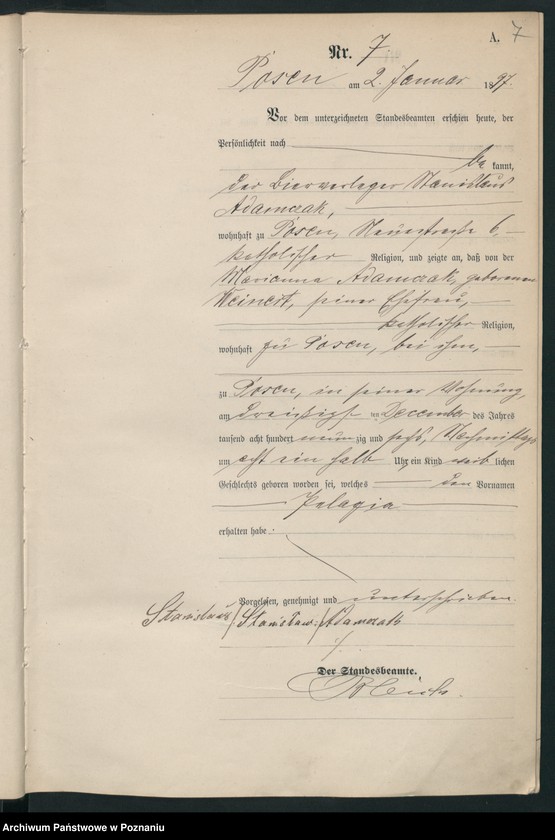 A. 7
Nr. 7
Posen am 2. Januar 1897.
Vor dem unterzeichneten Standesbeamten erschien heute, der
Persönlichkeit nach
be kannt,
der Bierverleger Stanislaus
Adamczak,
wohnhaft zu Posen, Neuestraße 6,
katholischer Religion, und zeigte an, daß von der
Marianna Adamczak, geborenen
Weinert, seiner Ehefrau,
katholischer Religion,
wohnhaft zu Posen, bei ihm,
zu Posen, in seiner Wohnung,
am dreißigst ten December des Jahres
tausend acht hundert neun zig und sechs, Nachmittags
um acht ein halb Uhr, ein Kind weib lichen
Geschlechts geboren worden sei, welches den Vornamen
Pelagia
erhalten habe.
Vorgelesen, genehmigt und unterschrieben.
Stanislaus /: Stanisław :/ Adamczak
Der Standesbeamte.
Archiwum Państwowe w Poznaniu